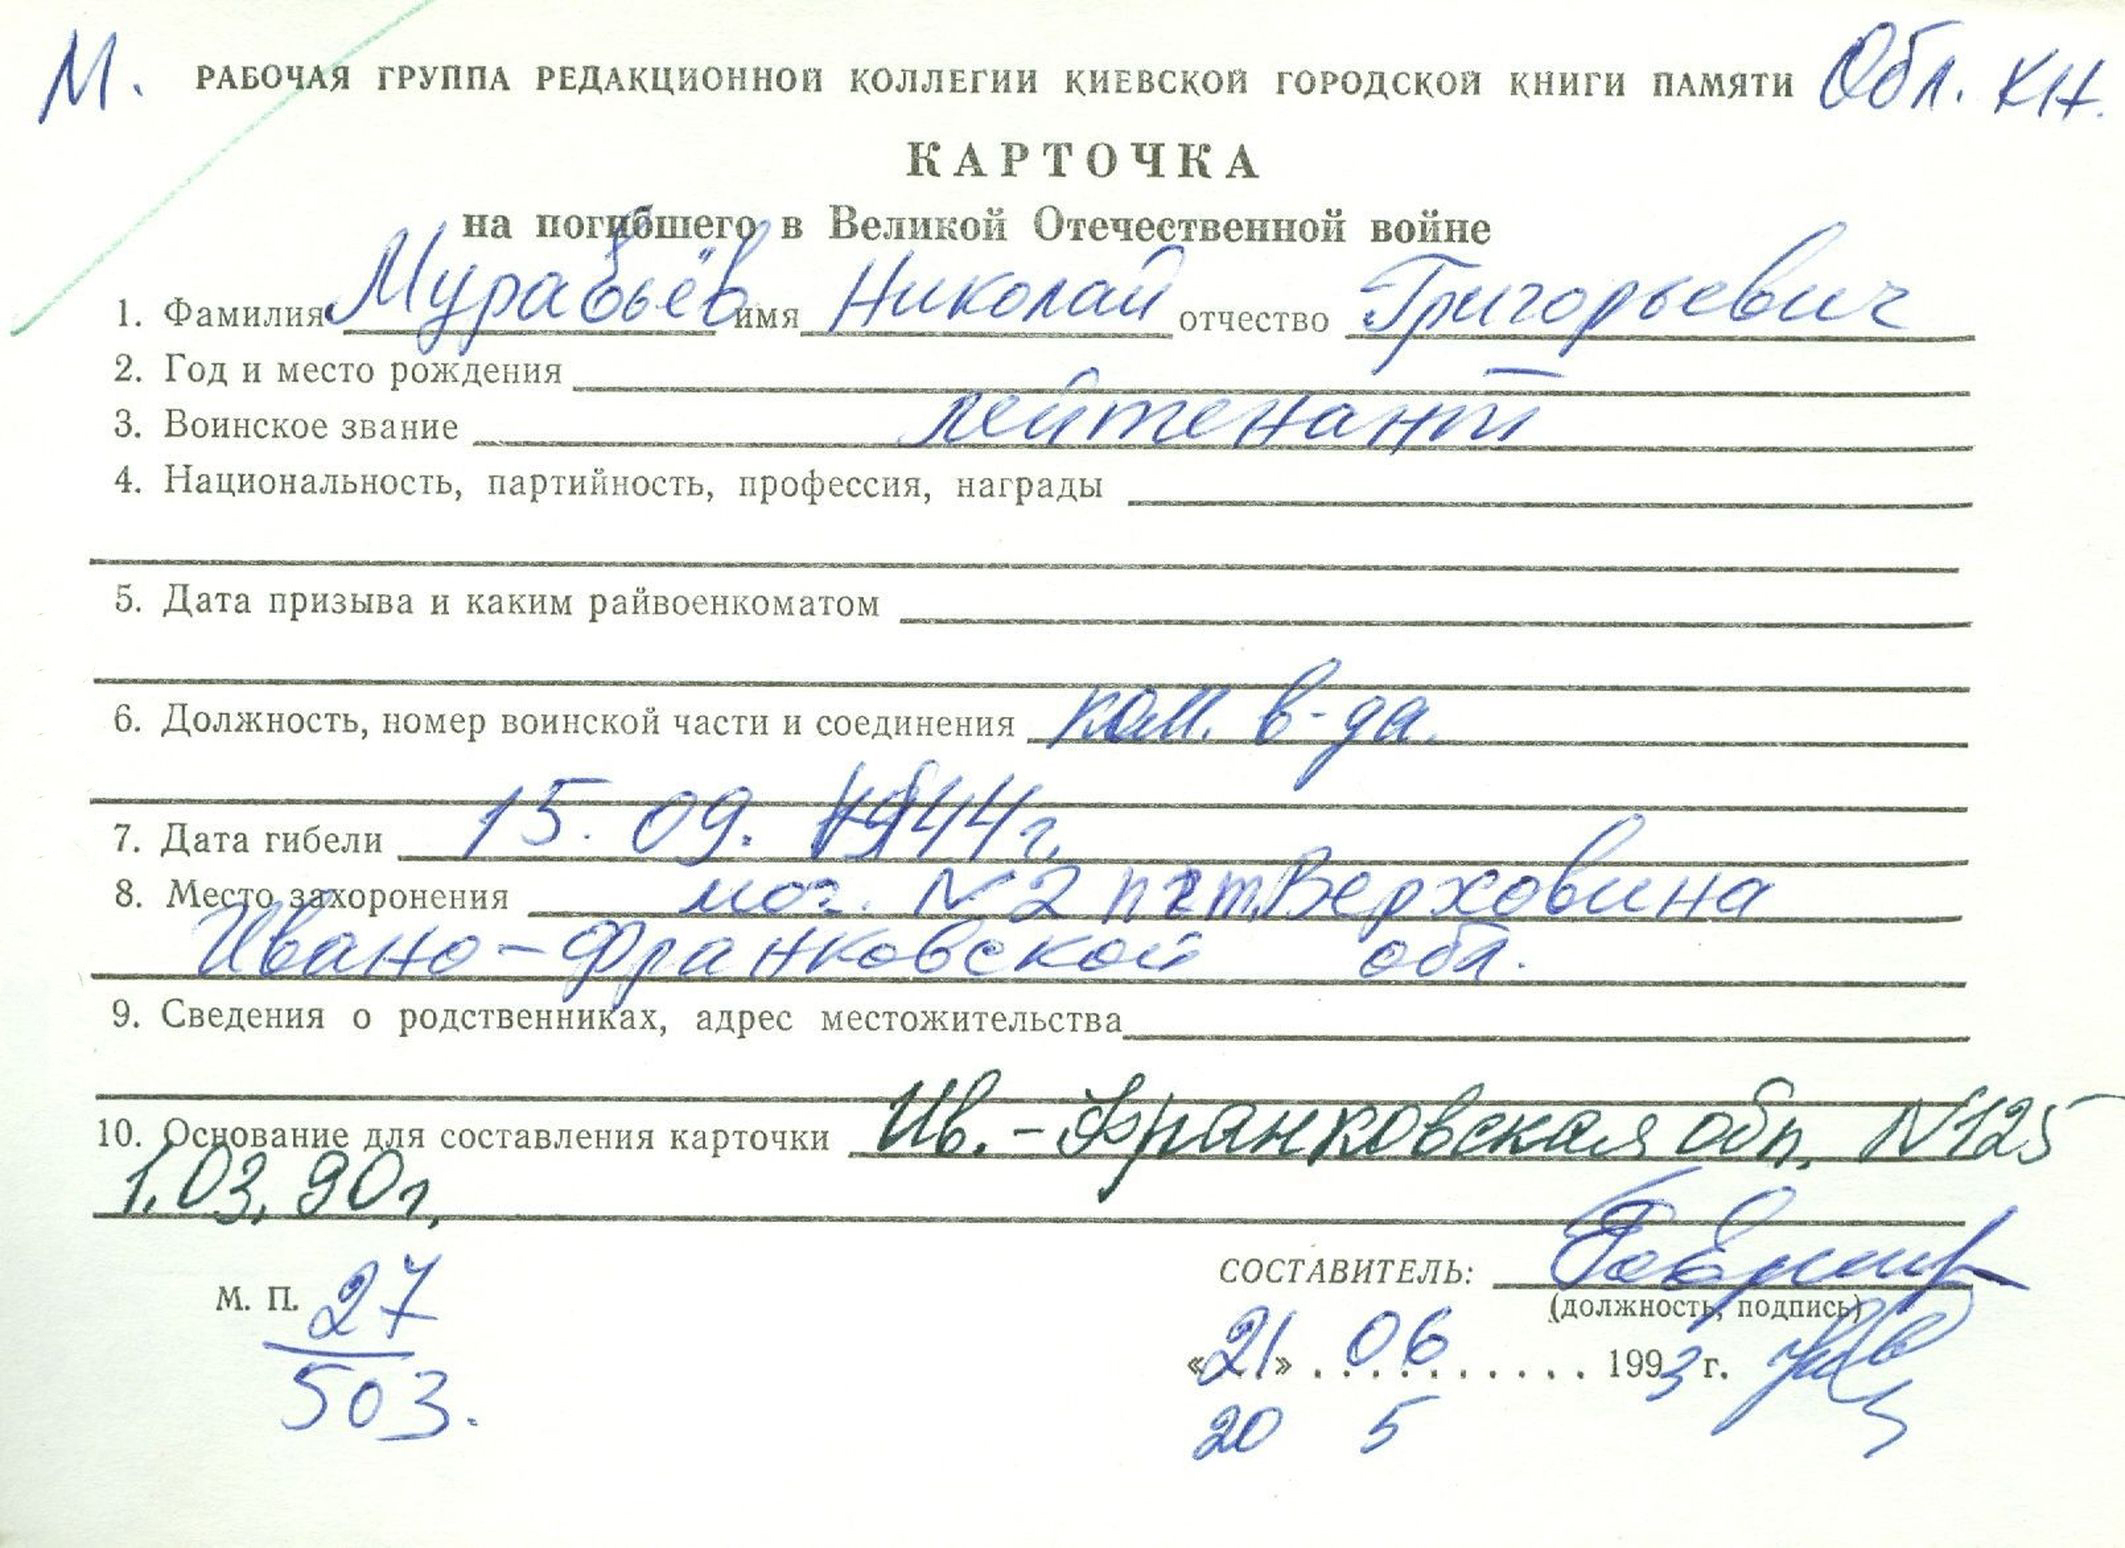 М. РАБОЧАЯ ГРУППА РЕДАКЦИОННОЙ КОЛЛЕГИИ КИЕВСКОЙ ГОРОДСКОЙ КНИГИ ПАМЯТИ Обл. КН.
КАРТОЧКА
на погибшего в Великой Отечественной войне
1. Фамилия Муравьёв имя Николай отчество Григорьевич
2. Год и место рождения
3. Воинское звание лейтенант
4. Национальность, партийность, профессия, награды
5. Дата призыва и каким райвоенкоматом
6. Должность, номер воинской части и соединения ком. в-да.
7. Дата гибели 15. 09. 1944 г.
8. Место захоронения мог. N 2 пгт. Верховина
Ивано-Франковской обл.
9. Сведения о родственниках, адрес местожительства
10. Основание для составления карточки Ив.-Франковская обл. N125
1.03.90 г.
М. П. 27
503.
СОСТАВИТЕЛЬ:
(должность, подпись)
«21» 06 .......... 1993 г.
20 5